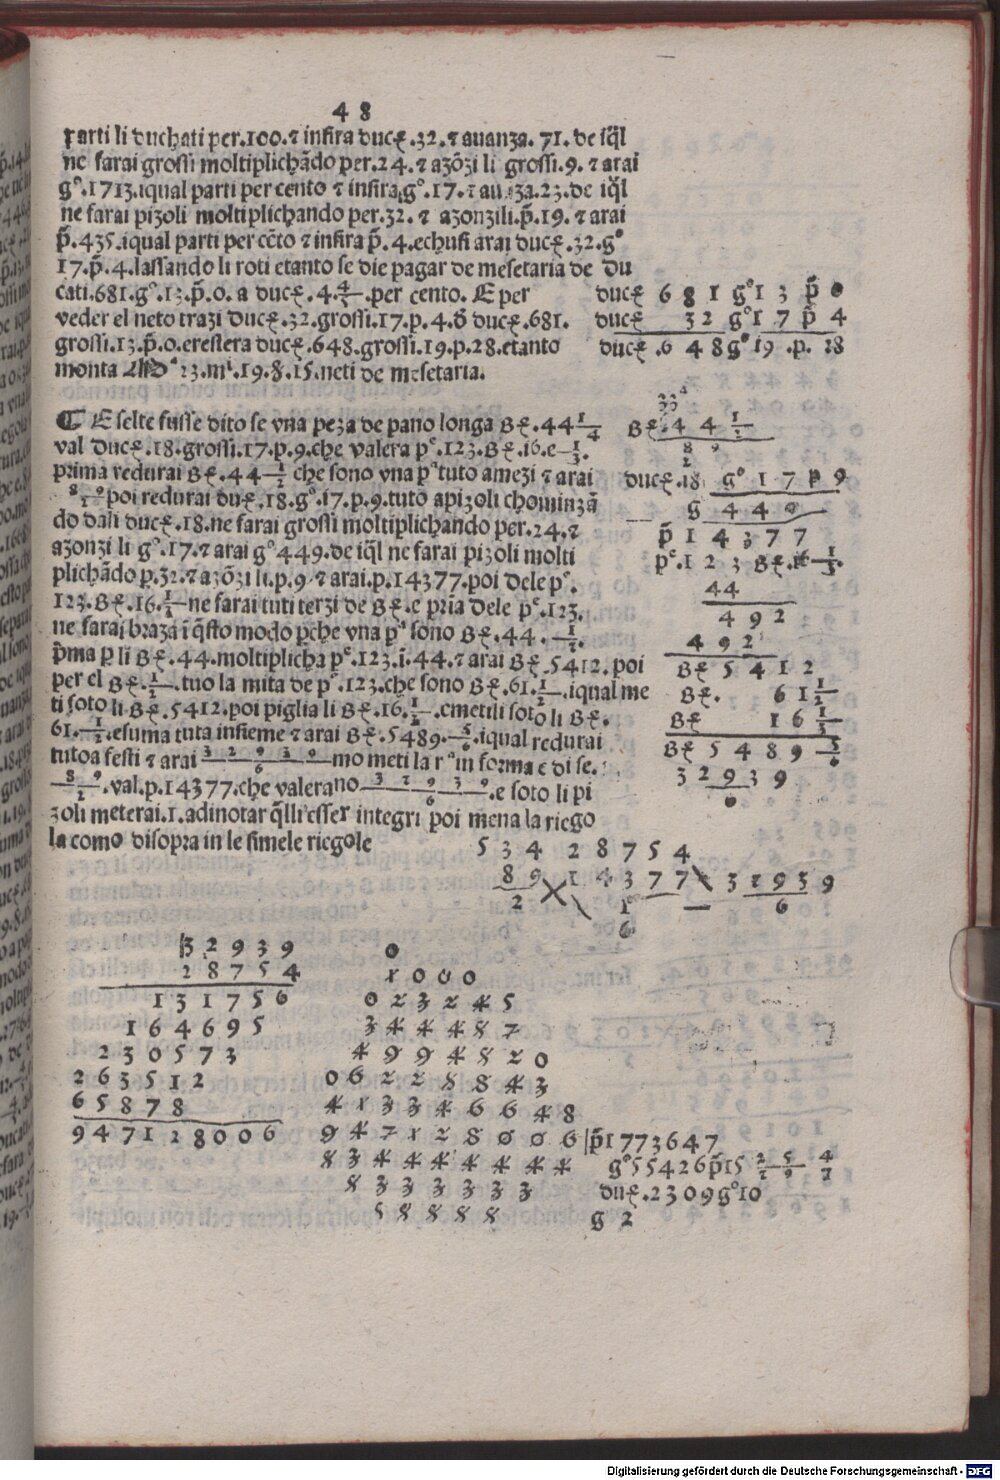 48
parti li duchati per.100.⁊ insira ducꝭ.32.⁊ auanza.71.de iq̃l
ne farai grossi moltiplichãdo per.24.⁊ azõzi li grossi.9.⁊ arai
gº.1713.iqual parti per cento ⁊ insira gº.17.⁊ auãza.23.de iq̃l
ne farai pizoli moltiplichando per.32.⁊ azonzili.p̃.19.⁊ arai
p̃.435.iqual parti per cẽto ⁊ insira p̃.4.echusi arai ducꝭ.32.gº
17.p̃.4.lassando li roti etanto se die pagar de mesetaria de du
cati.681.gº.13.p̃.0.a ducꝭ.4.4/5.per cento. E per
veder el neto trazi ducꝭ.32.grossi.17.p.4.đ ducꝭ.681.
grossi.13.p̃.0.erestera ducꝭ.648.grossi.19.p.28.etanto
monta 23.mi.19.8.15.neti de mesetaria.
ducꝭ 681 gº13 p̃ 0
ducꝭ 32 gº17 p̃ 4
ducꝭ.648gº19.p.28
¶ E selte fusse dito se vna peza de pano longa Bꝭ.44 1/4
val ducꝭ.18.grossi.17.p.9.che valera pᵉ.123.Bꝭ.16.e 1/3.
prima redurai Bꝭ.44 1/2 che sono vna pᵃ tuto amezi ⁊ arai
89/2 poi redurai duꝭ.18.gº.17.p.9.tuto apizoli chominzã
do dali ducꝭ.18.ne farai grossi moltiplichando per.24.⁊
azonzi li gº.17.⁊ arai gº449.de iq̃l ne farai pizoli molti
plichãdo p.32.⁊ azõzi li.p.9.⁊ arai.p.14377.poi dele pᵉ.
123.Bꝭ.16.1/2 ne farai tuti terzi de Bꝭ.e pria dele pᵉ.123.
ne farai braza ĩ q̃sto modo pche vna pᵃ sono Bꝭ.44.1/2.
p̃ma p li Bꝭ.44.moltiplicha pᵉ.123.ĩ.44.⁊ arai Bꝭ.5412.poi
per el Bꝭ.1/2.tuo la mita de pᵉ.123.che sono Bꝭ.61.1/2.iqual me
ti soto li Bꝭ.5412.poi piglia li Bꝭ.16.1/2.emetili soto li Bꝭ.
61.1/2.esuma tuta insieme ⁊ arai Bꝭ.5489.5/6.iqual redurai
tutoa sesti ⁊ arai 32939/6 mo meti la rᵃ in forma e di se.
89/2.val.p.14377.che valerano 32939/6.e soto li pi
zoli meterai.1.adinotar q̃lli esser integri poi mena la riego
la como disopra in le simele riegole
33 4
Bꝭ.44 1/2
8 9
2
ducꝭ.18 gº 17 p 9
g 449
p̃ 14377
pᵉ.123 Bꝭ.16 1/3.
44
492
492
Bꝭ 5412
Bꝭ. 61 1/2
Bꝭ 16 1/3
Bꝭ 5489 5/6
32939
6
534 28754
89 14377 32939
2 1 6
6
32939
28754
131756
164695
230573
263512
65878
947128006
0
1000
023245
344487
4994820
06228843
413346648
947128006 | p̃1773647
83444444 gº55426p̃15 2/2 5/9 4/7
8333333 duꝭ.2309gº10
58888 g 2
Digitalisierung gefördert durch die Deutsche Forschungsgemeinschaft - DFG